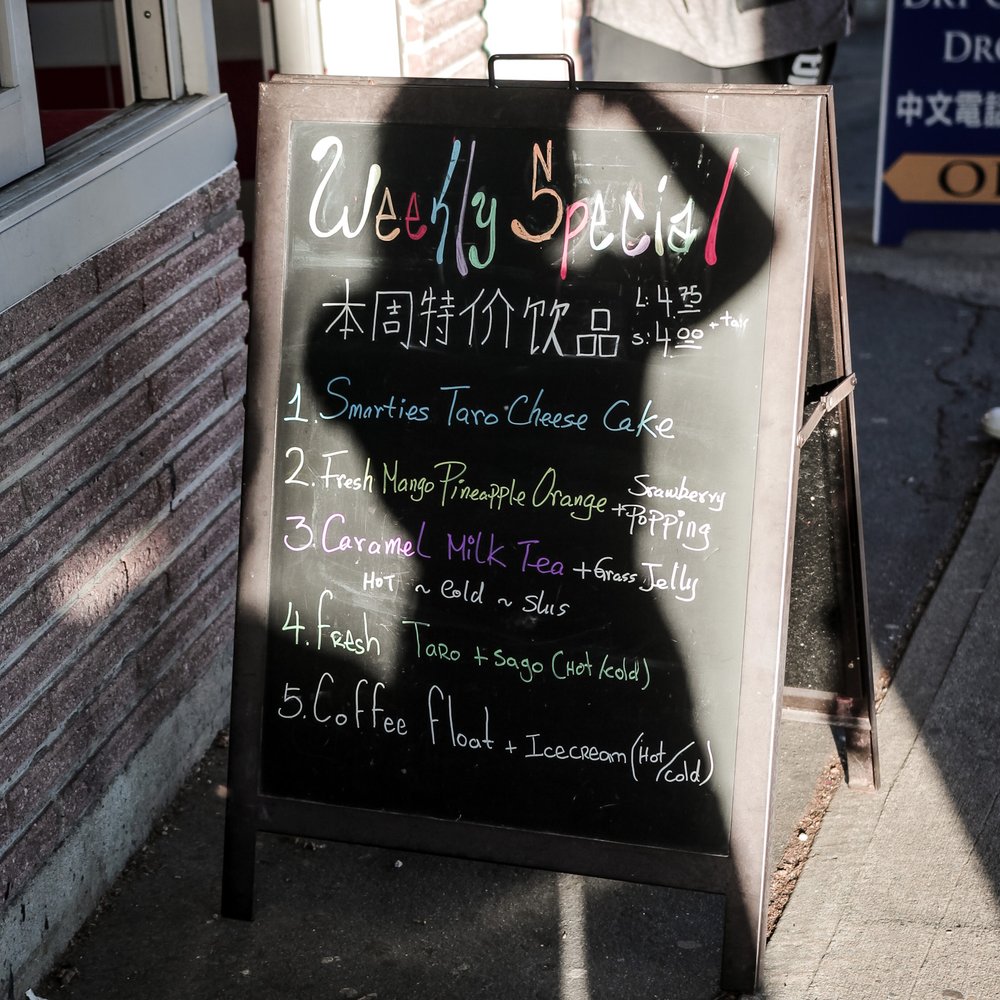 Weekly Special
本周特价饮品
L: 4.75
S: 4.00 + tax
1. Smarties Taro Cheese Cake
2. Fresh Mango Pineapple Orange + Srawberry Popping
3. Caramel Milk Tea + Grass Jelly
Hot ~ Cold ~ Slus
4. Fresh Taro + Sago (Hot/cold)
5. Coffee Float + Icecream (Hot/cold)
中文電